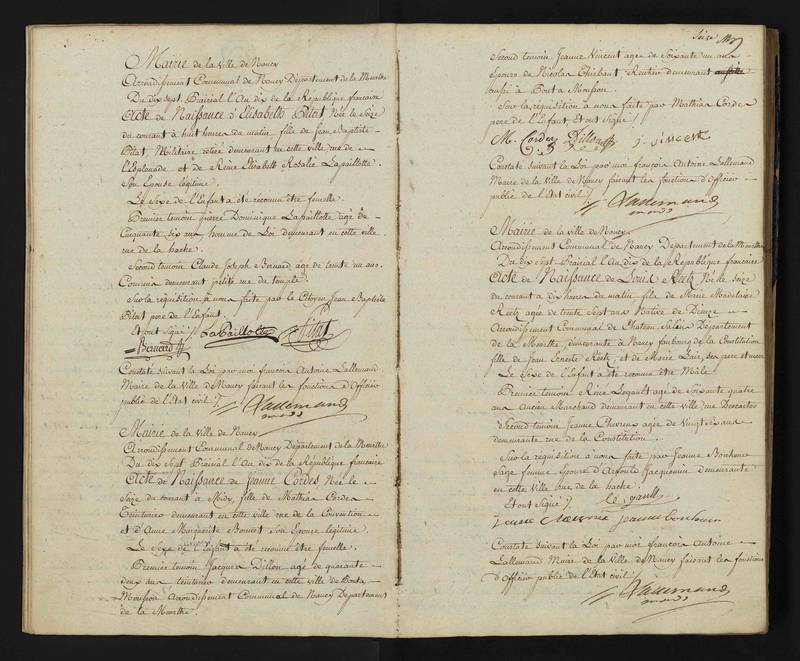 Mairie de la ville de Nancy
Arrondissement Communal de Nancy Département de la Meurthe
Du dix sept Prairial l'An dix de la République française
Acte de Naissance d'Elisabeth Bitat Née le Seize
du courant à huit heures du matin fille de Jean Baptiste
Bitat, Militaire retiré demeurant en cette ville rue de
l'Esplanade et de Reine Elisabeth Rosalie Lapaillotte
Son Epouse légitime.
Le Sexe de l'Enfant a été reconnu être femelle.
Premier temoin pierre Dominique Lapaillotte agé de
Cinquante six ans homme de Loi demeurant en cette ville
rue de la hache.
Second temoin Claude Joseph Bernard agé de trente un ans
Commis demeurant petite rue du temple.
Sur la requisition à nous faite par le Citoyen Jean Baptiste
Bitat pere de l'Enfant.
Et ont Signé :/ LaPaillotte Bitat
Bernard
Constaté suivant la Loi par moi françois Antoine Lallemand
Maire de la Ville de Nancy faisant les fonctions d'Officier
public de l'Etat civil :/
Lallemand
Mairie de la Ville de Nancy
Arrondissement Communal de Nancy Département de la Meurthe
Du dix Sept Prairial l'An dix de la République française
Acte de Naissance de Jeanne Cordes Née le
Seize du courant à Midi, fille de Mathias Cordes
Teinturier demeurant en cette ville rue de la Convention
et d'Anne Marguerite Son Epouse légitime.
Le Sexe de l'Enfant a été reconnu être femelle.
Premier temoin Jacques Dillon agé de quarante
deux ans teinturier demeurant en cette ville de Pont à
Mousson Arrondissement Communal de Nancy Département
de la Meurthe.
Seize
Second temoin Jeanne Vincent agée de Soixante un ans
Epouse de Nicolas Thiebaut Rentier demeurant
aussi à Pont à Mousson.
Sur la réquisition à nous faite par Mathias Cordes
pere de l'Enfant. Et ont Signé :/
M. Cordes Dillon J. VINCENT
Constaté suivant la Loi par moi françois Antoine Lallemand
Maire de la Ville de Nancy faisant les fonctions d'Officier
public de l'Etat civil :/
Lallemand
Mairie de la ville de Nancy.
Arrondissement Communal de Nancy Département de la Meurthe
Du dix Sept Prairial l'An dix de la République française
Acte de Naissance de Louis Né le Seize
du courant à dix heures du matin fils de Marie Magdelaine
agée de trente Sept ans Native de Dieuze
Arrondissement Communal de Chateau Salins Département
de la Meurthe, demeurante à Nancy faubourg de la Constitution
fille de Jean et de Marie ses pere et mere
Le Sexe de l'Enfant a été reconnu être Mâle.
Premier temoin René Legault agé de Soixante quatre
ans Ancien Marchand demeurant en cette ville rue Descartes
Second temoin Jeanne agée de Vingt Six ans
demeurante rue de la Constitution.
Sur la requisition à nous faite par Jeanne Bonhome
Sage femme Epouse d'Arfoult Jacquemin demeurante
en cette ville rue de la hache.
Et ont Signé :/ le gault
jeanne bonhom
Constaté suivant la Loi par moi françois Antoine
Lallemand Maire de la Ville de Nancy faisant les fonctions
d'Officier public de l'Etat civil :/
Lallemand